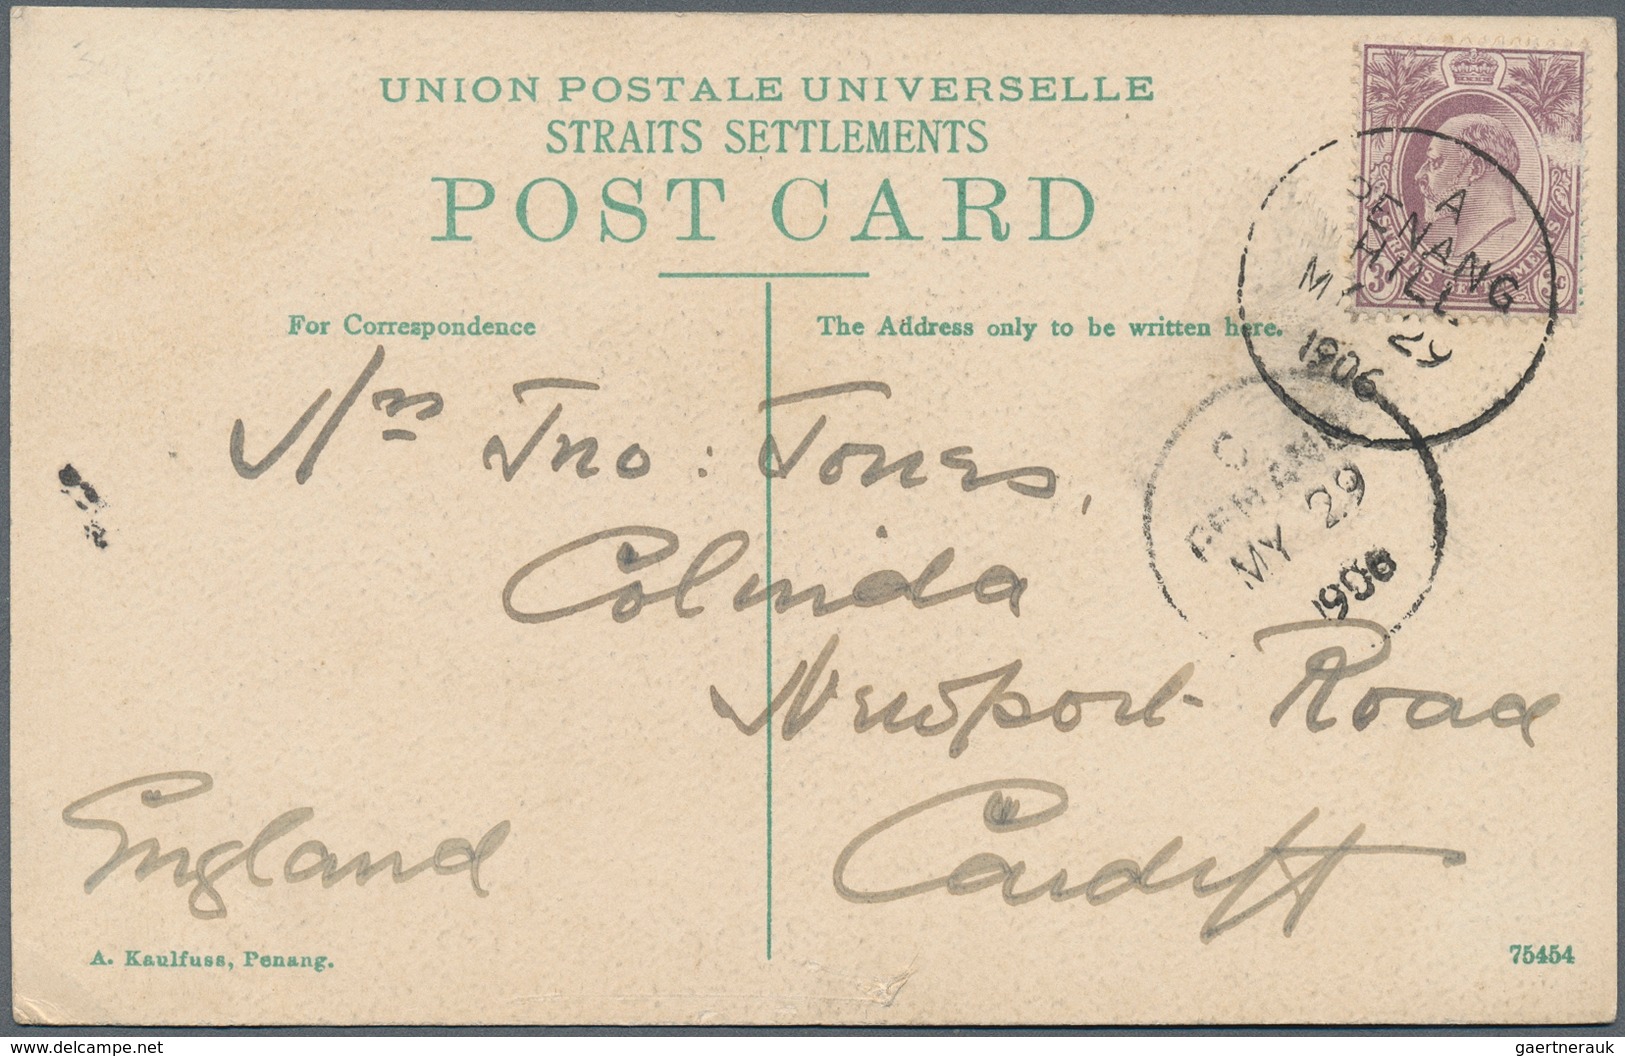 UNION POSTALE UNIVERSELLE
STRAITS SETTLEMENTS
POST CARD
A
PENANG
HILL
MY 29
1906
3c
3c
For Correspondence
The Address only to be written here.
C
PENANG
MY 29
1906
Mrs Jno: Jones,
Colinda
Newport Road
Cardiff
England
A. Kaulfuss, Penang.
75454
delcampe.net
gaertnerauk